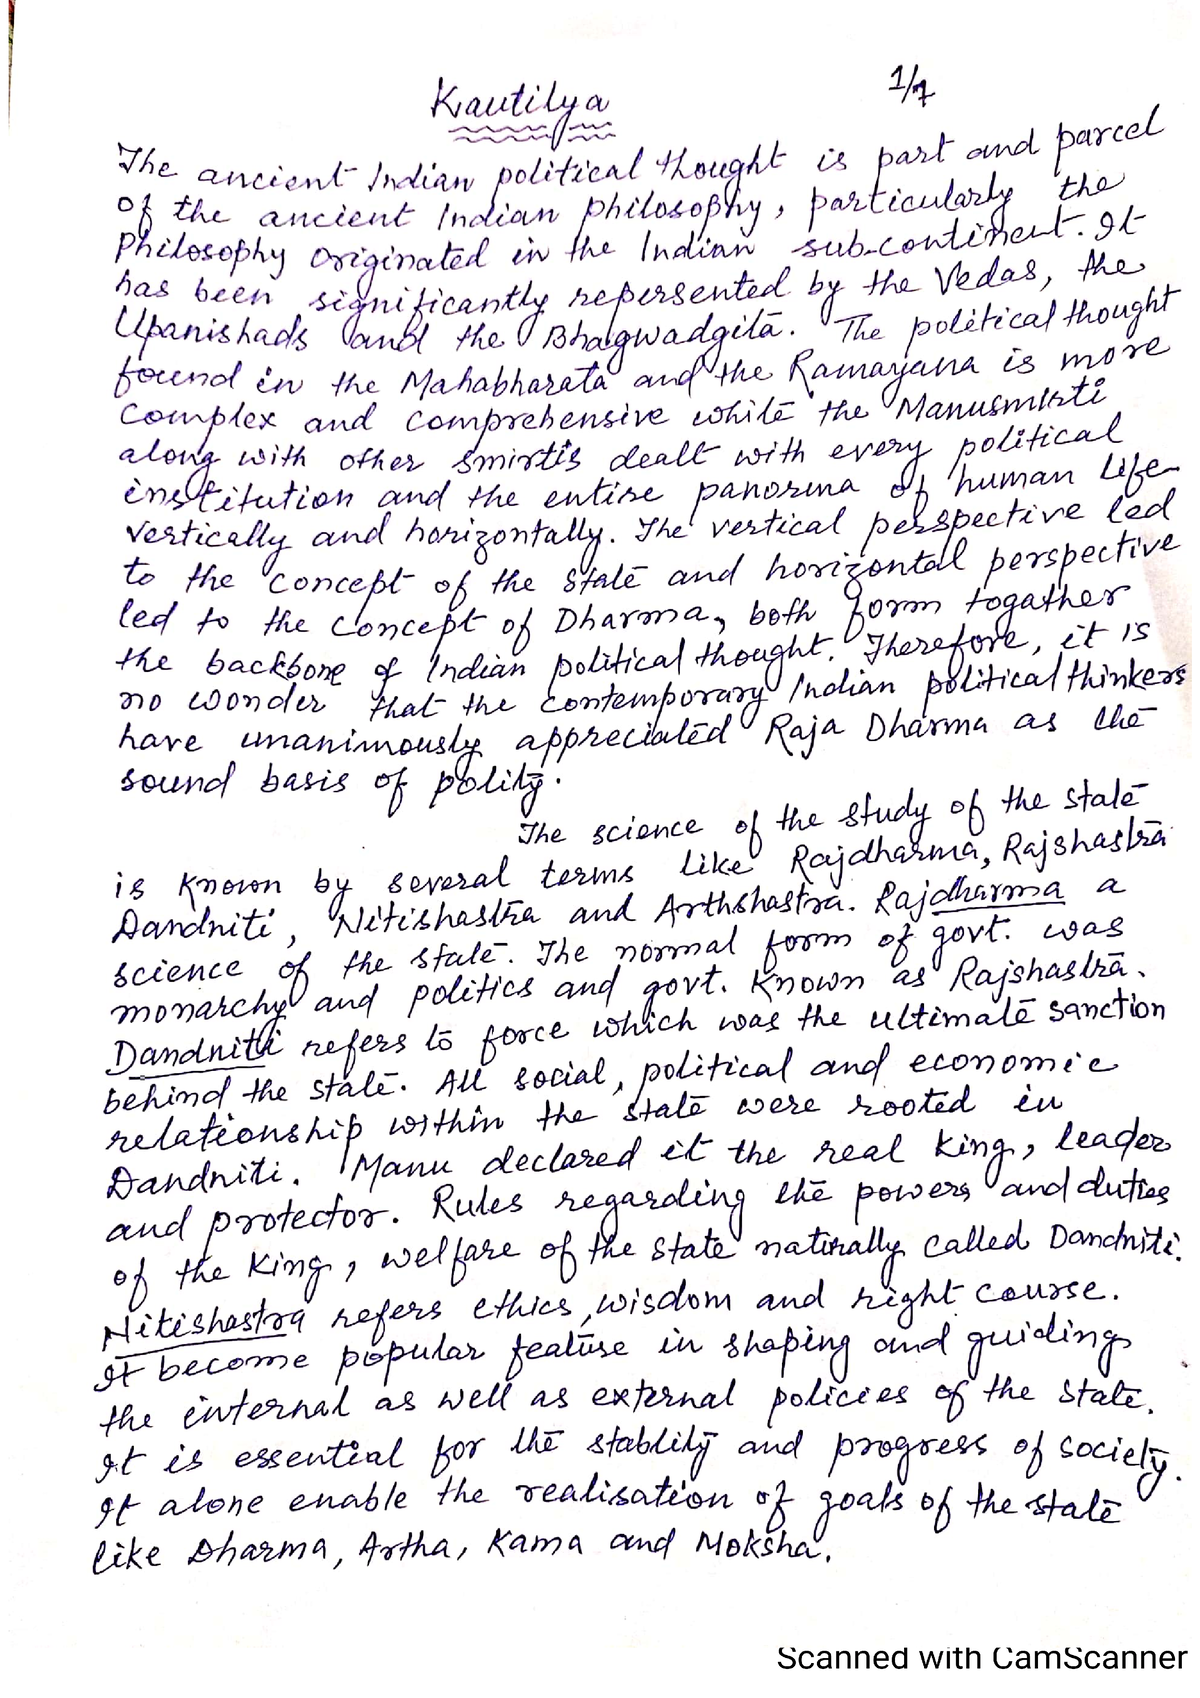 Kautilya
1/7
The ancient Indian political thought is part and parcel
of the ancient Indian philosophy, particularly the
Philosophy originated in the Indian sub-continent. It
has been significantly repersented by the Vedas, the
Upanishads and the Bhagwadgita. The political thought
found in the Mahabharata and the Ramayana is more
complex and comprehensive while the Manusmirti
along with other smirtis dealt with every political
institution and the entire panorma of human life
vertically and horizontally. The vertical perspective led
to the concept of the state and horizontal perspective
led to the concept of Dharma, both form togather
the backbone of Indian political thought. Therefore, it is
no wonder that the contemporary Indian political thinkers
have unanimously appreciated Raja Dharma as the
sound basis of polity.
The science of the study of the state
is known by several terms like Rajdharma, Rajshastra
Dandniti, Nitishastra and Arthshastra. Rajdharma a
science of the state. The normal form of govt. was
monarchy and politics and govt. known as Rajshastra.
Dandniti refers to force which was the ultimate sanction
behind the state. All social, political and economic
relationship within the state were rooted in
Dandniti. Manu declared it the real king, leader
and protector. Rules regarding the powers and duties
of the King, welfare of the state naturally called Dandniti.
Nitishastra refers ethics, wisdom and right course.
It become popular feature in shaping and guiding
the internal as well as external policies of the state.
It is essential for the stablity and progress of society.
It alone enable the realisation of goals of the state
like Dharma, Artha, Kama and Moksha.
Scanned with CamScanner